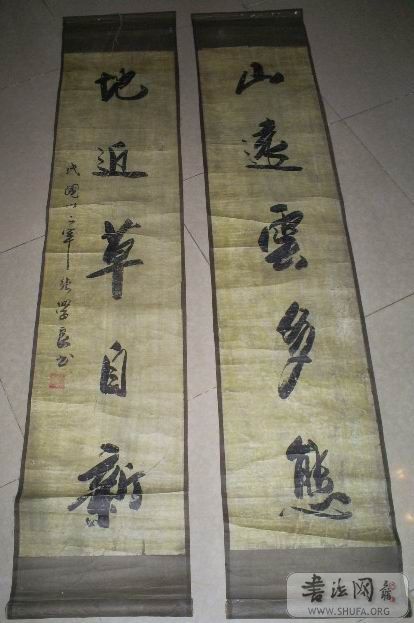 山遠雲多態
地近草自新
民國十二年張學良書
書法网
WWW.SHUFA.ORG